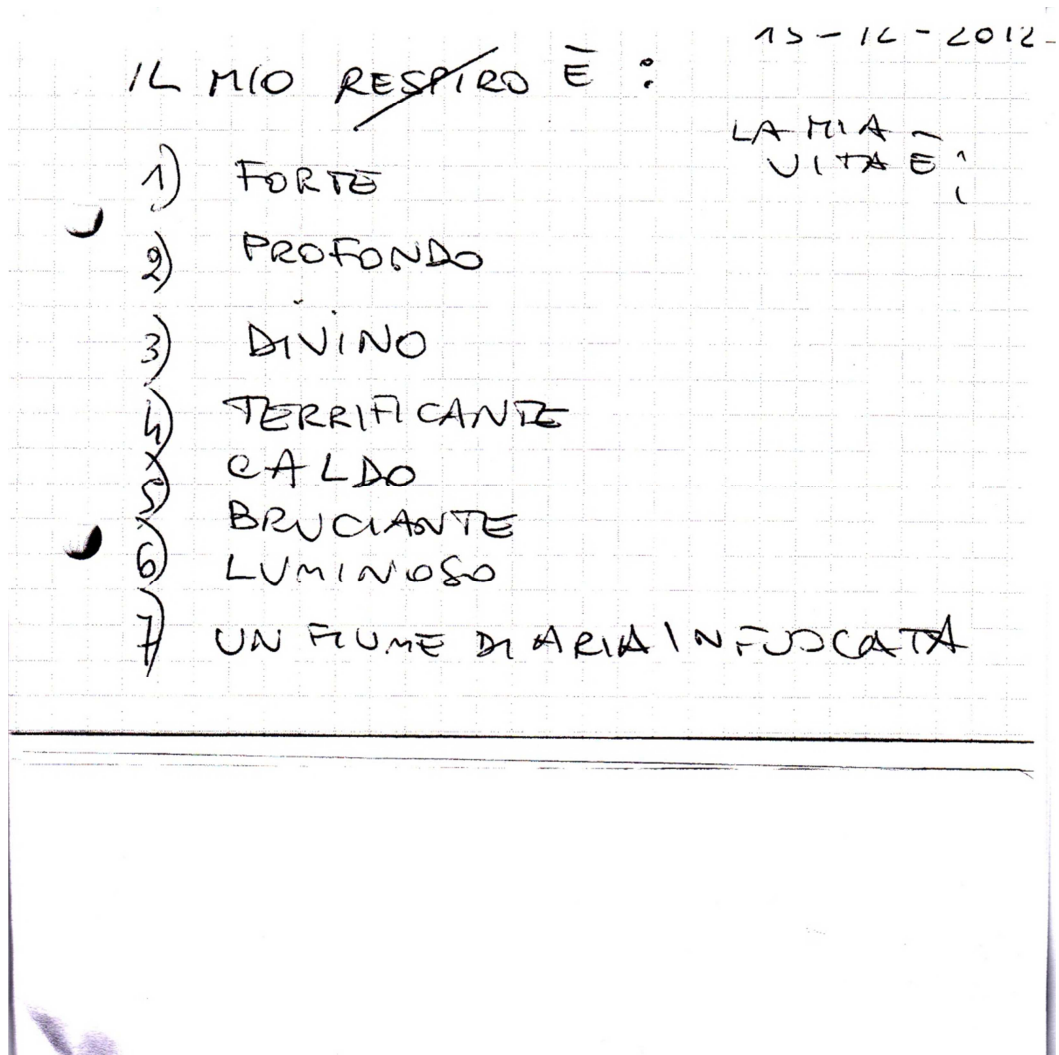 15-12-2012
IL MIO RESPIRO È :
LA MIA
VITA È :
1) FORTE
2) PROFONDO
3) DIVINO
4) TERRIFICANTE
5) CALDO
BRUCIANTE
6) LUMINOSO
7) UN FIUME DI ARIA INFUOCATA